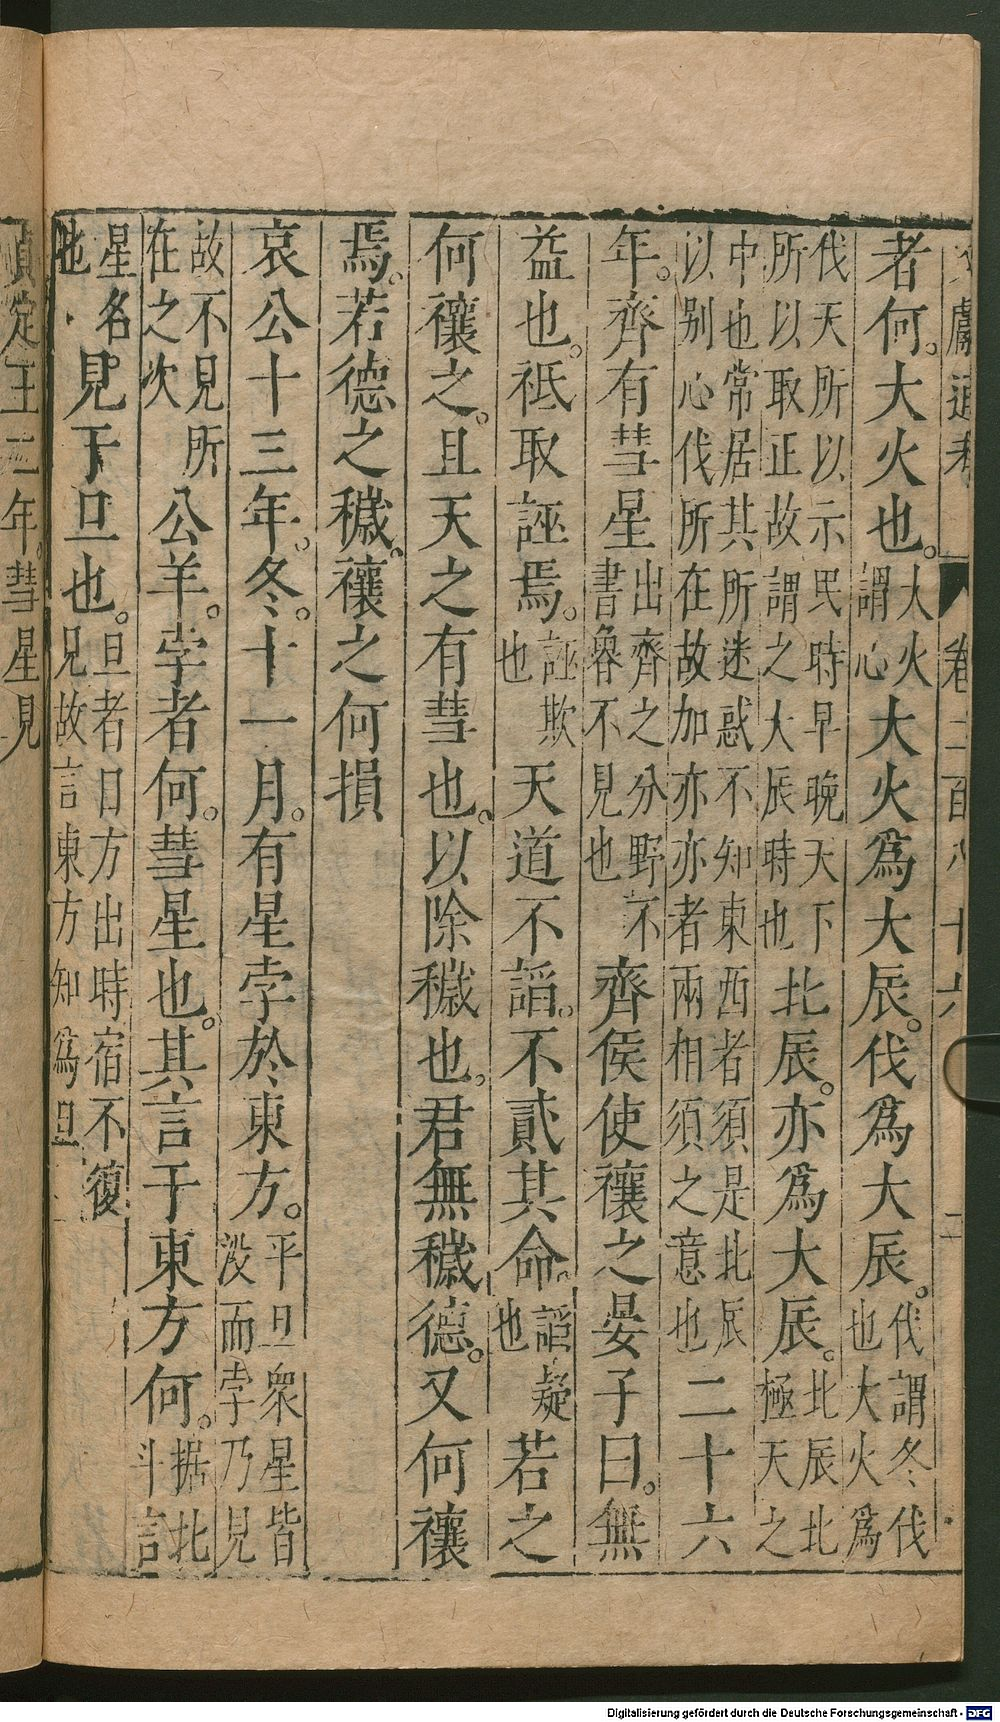 文獻通考 卷二百八十六 二
者何。大火也。大火謂心大火爲大辰。伐爲大辰。伐謂冬伐也大火爲
伐天所以示民時早晚天下所以取正故謂之大辰時也北辰。亦爲大辰。北辰北極天之
中也常居其所迷惑不知東西者須是北辰以别心伐所在故加亦亦者兩相須之意也二十六
年。齊有彗星出齊之分野不書魯不見也齊侯使禳之晏子曰。無
益也。祗取誣焉。誣欺也天道不謟。不貳其命。謟疑也若之
何禳之。且天之有彗也。以除穢也。君無穢德。又何禳
焉。若德之穢。禳之何損
哀公十三年。冬。十一月。有星孛於東方。平旦衆星皆没而孛乃見
故不見所在之次公羊。孛者何。彗星也。其言于東方何。据北斗言
星名也見于旦也。旦者日方出時宿不復見故言東方知爲旦
貞定王二年。彗星見